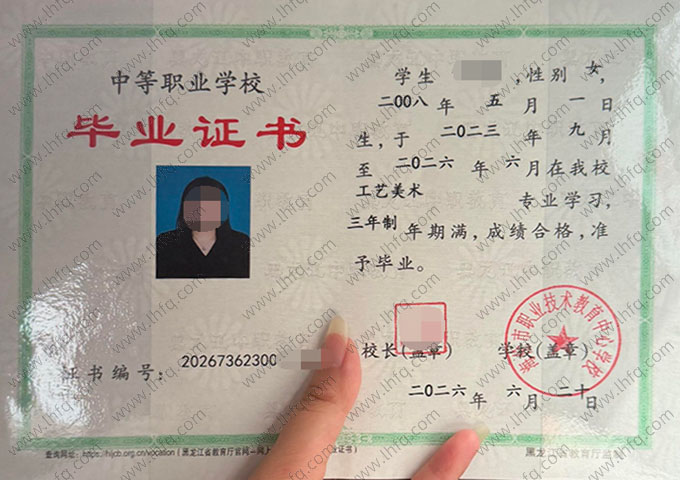 中等职业学校
毕业证书
学生 ,性别 女,
二00八 年 五 月 一 日
生,于 二0二三 年 九 月
至 二0二六 年 六 月在我校
工艺美术 专业学习,
三年制 年期满,成绩合格,准
予毕业。
校长(盖章) 学校(盖章)
市职业技术教育中心学校
证书编号: 20267362300
二0二六 年 六 月 二十 日
查询网址: https://hljcb.org.cn/vocation (黑龙江省教育厅官网—网上 业证书)
黑龙江省教育厅监制
www.lhfq.com